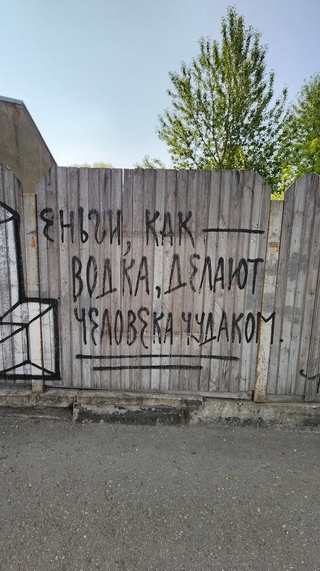 еньги, как —
водка, делают
человека чудаком.